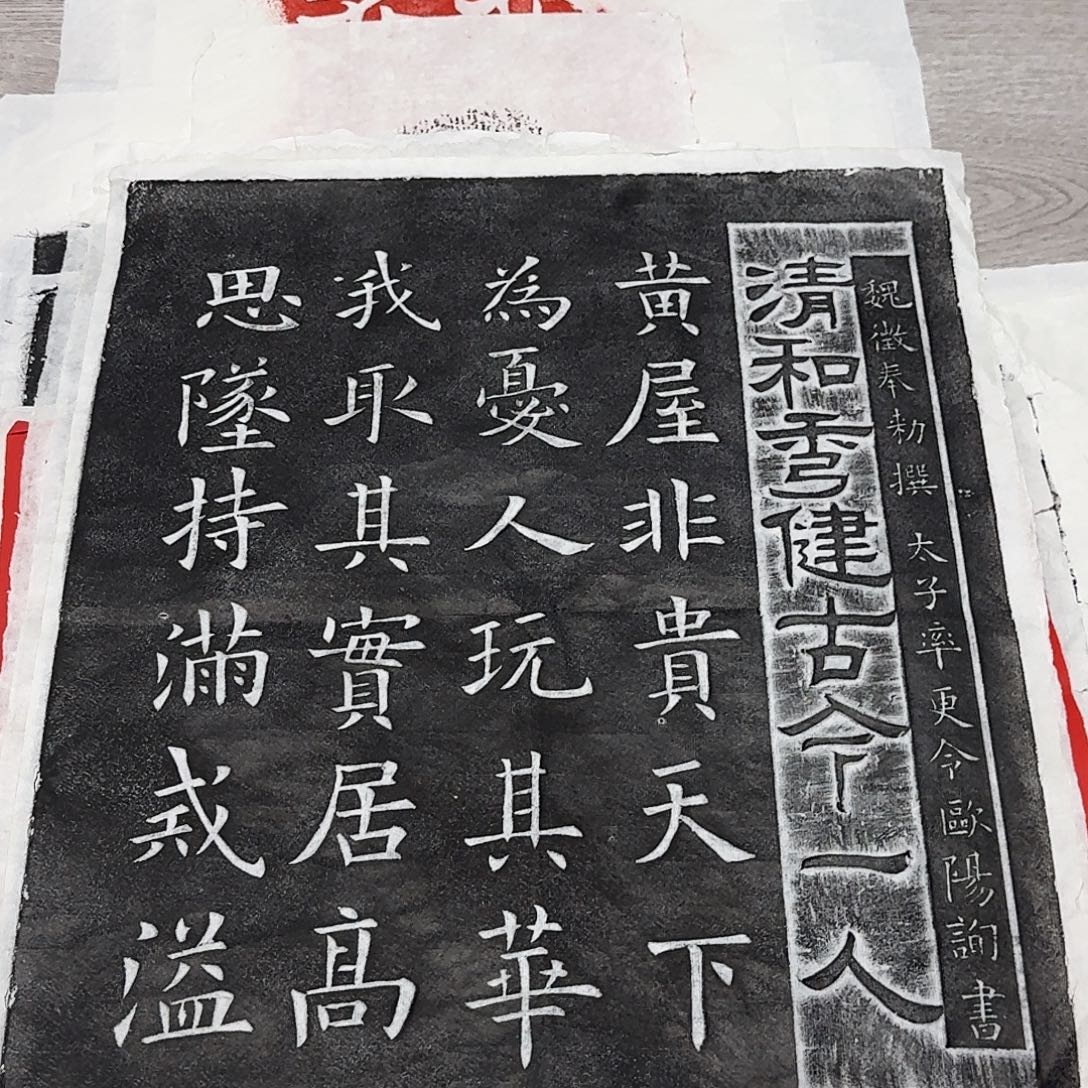 魏徵奉勅撰 太子率更令歐陽詢書
清和秀健古今一人
黃屋非貴天下
為憂人玩其華
我取其實居高
思墜持滿戒溢